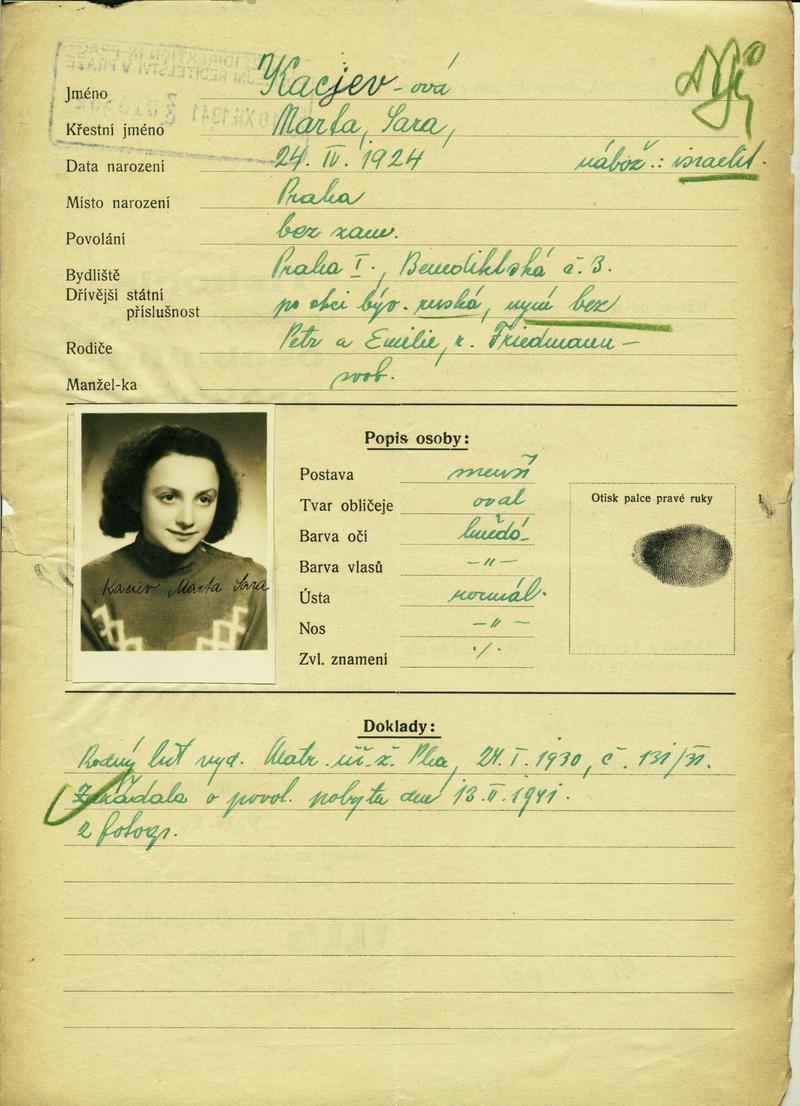 Jméno Kacjev-ová
Křestní jméno Marta, Sara,
Data narození 24. IV. 1924 nábož.: israelit.
Místo narození Praha
Povolání bez zam.
Bydliště Praha I., Benediktská č. 3.
Dřívější státní
příslušnost po otci býv. ruská, nyní bez
Rodiče Petr a Emilie, r. Friedmann –
Manžel-ka svob.
Popis osoby:
Postava menší
Tvar obličeje oval
Barva očí hnědé
Barva vlasů –"–
Ústa normál.
Nos –"–
Zvl. znamení ·/·
Kacjev Marta Sara
Otisk palce pravé ruky
Doklady:
Rodný list vyd. Matr. úř. ž. Pha, 24. I. 1930, č. 131/31.
Zažádala o povol. pobytu dne 13. II. 1941.
2 fotogr.